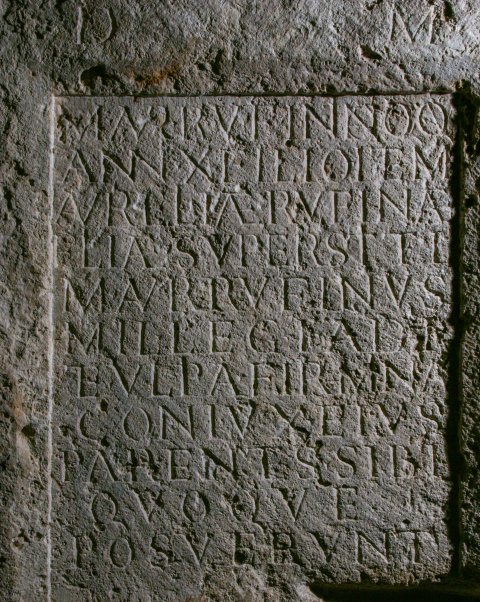 D M
M AVR RVFINNO Q
ANN XI FILIO PEM
AVRELIA RVFINA
FILIA SVPERSITE
M AVR RVFINVS
MIL LEG I ADI
ET VLPA FIRMNA
CONIVX EIVS
PARENTS SIBI
QVOQVE
POSVERVNT